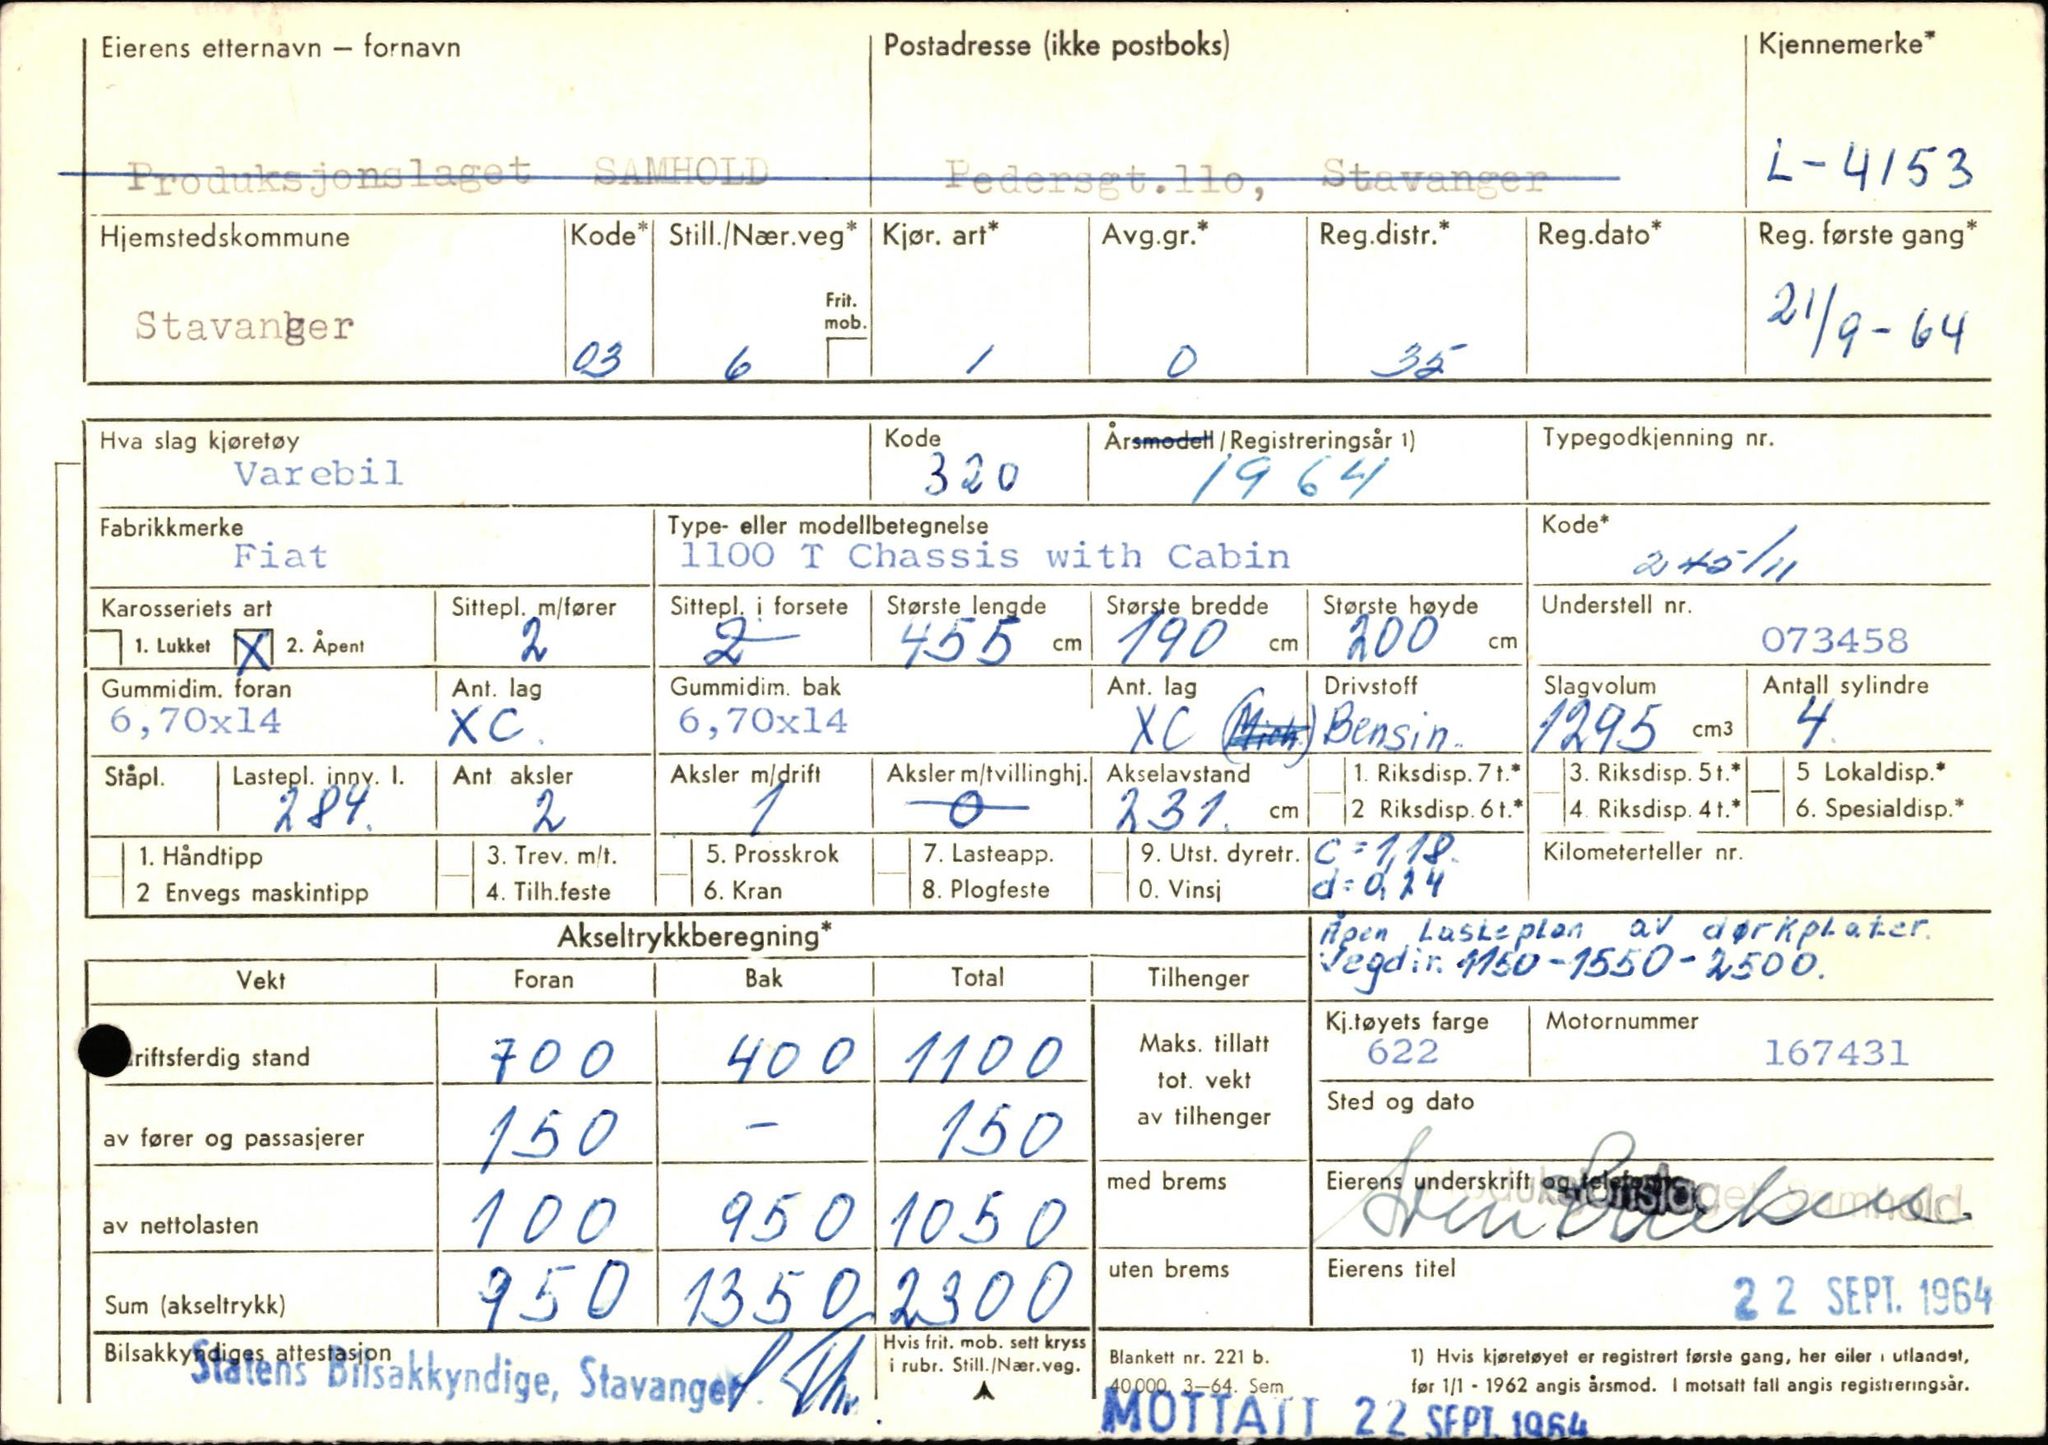 Eierens etternavn – fornavn Postadresse (ikke postboks) Kjennemerke*
Produksjonslaget SAMHOLD Pedersgt.110, Stavanger L-4153
Hjemstedskommune Kode* Still./Nær.veg* Kjør. art* Avg.gr.* Reg.distr.* Reg.dato* Reg. første gang*
Frit.
mob.
Stavanger 03 6 1 0 35 21/9-64
Hva slag kjøretøy Kode Årsmodell/Registreringsår 1) Typegodkjenning nr.
Varebil 320 1964
Fabrikkmerke Type- eller modellbetegnelse Kode*
Fiat 1100 T Chassis with Cabin 245/11
Karosseriets art Sittepl. m/fører Sittepl. i forsete Største lengde Største bredde Største høyde Understell nr.
1. Lukket X 2. Åpent 2 2 455 cm 190 cm 200 cm 073458
Gummidim. foran Ant. lag Gummidim. bak Ant. lag Drivstoff Slagvolum Antall sylindre
6,70x14 XC. 6,70x14 XC (Mich.) Bensin. 1295 cm3 4.
Ståpl. Lastepl. innv. l. Ant aksler Aksler m/drift Aksler m/tvillinghj. Akselavstand 1. Riksdisp. 7 t.* 3. Riksdisp. 5 t.* 5 Lokaldisp.*
284. 2 1 0 231. cm 2 Riksdisp. 6 t.* 4. Riksdisp. 4 t.* 6. Spesialdisp.*
1. Håndtipp 3. Trev. m/t. 5. Prosskrok 7. Lasteapp. 9. Utst. dyretr. c = 1,18. Kilometerteller nr.
2 Envegs maskintipp 4. Tilh.feste 6. Kran 8. Plogfeste 0. Vinsj d = 0,24
Akseltrykkberegning* Åpen Lasteplan av dørkplater.
Vekt Foran Bak Total Tilhenger Vegdir. 1150-1550-2500.
Kj.tøyets farge Motornummer
driftsferdig stand 700 400 1100 Maks. tillatt 622 167431
tot. vekt
av tilhenger
Sted og dato
av fører og passasjerer 150 – 150
med brems Eierens underskrift og telefonnr.
Produksjonslaget Samhold
av nettolasten 100 950 1050
uten brems Eierens titel
Sum (akseltrykk) 950 1350 2300 22 SEPT. 1964
Bilsakkyndiges attestasjon Hvis frit. mob. sett kryss
i rubr. Still./Nær.veg.
Statens Bilsakkyndige, Stavanger.
Blankett nr. 221 b. 1) Hvis kjøretøyet er registrert første gang, her eller i utlandet,
40000. 3–64. Sem før 1/1 - 1962 angis årsmod. I motsatt fall angis registreringsår.
MOTTATT 22 SEPT. 1964